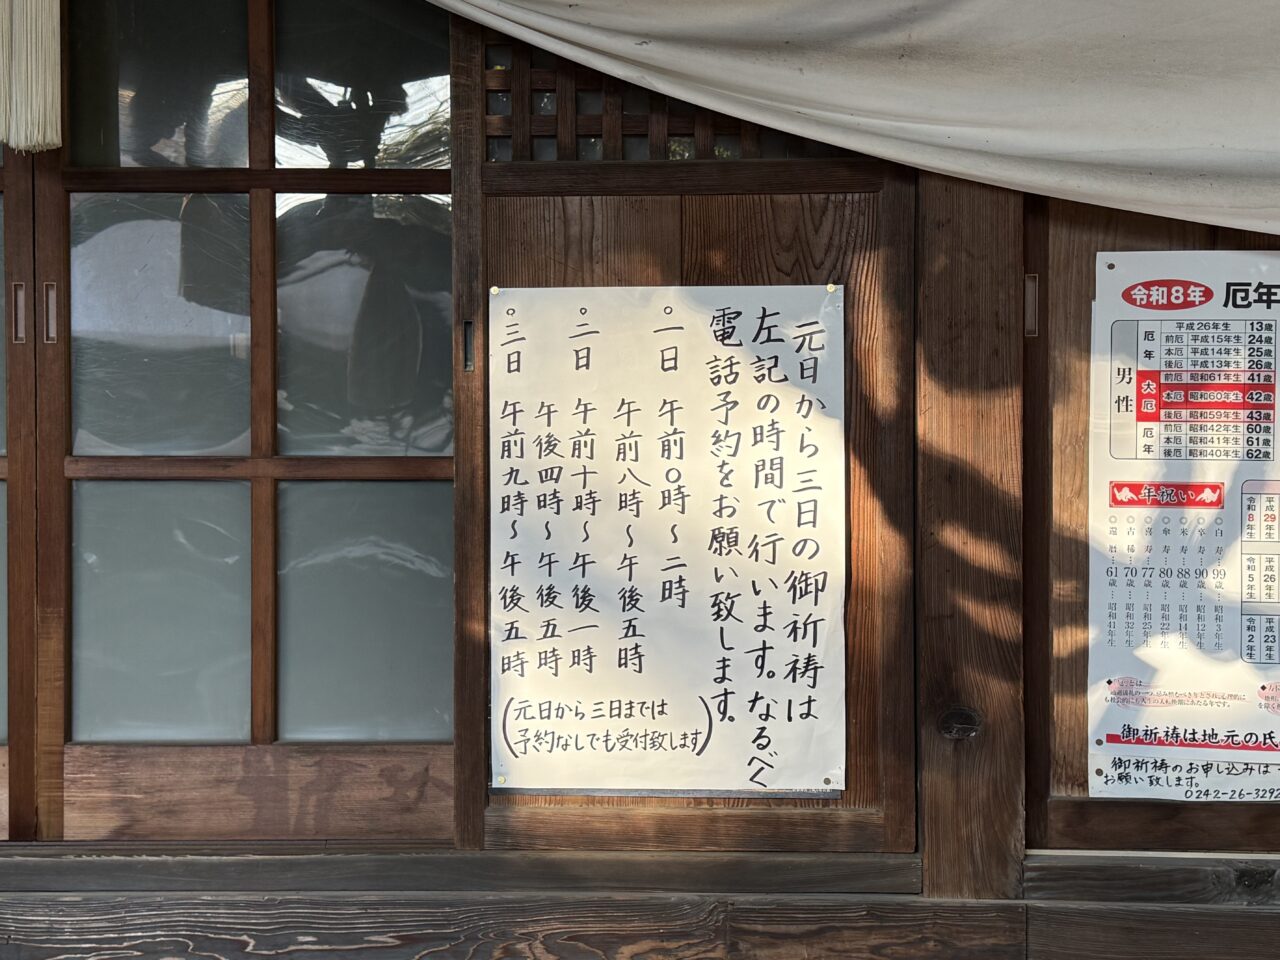 元日から三日の御祈祷は
左記の時間で行います。なるべく
電話予約をお願い致します。
○一日 午前〇時～二時
午前八時～午後五時
○二日 午前十時～午後一時
午後四時～午後五時
○三日 午前九時～午後五時
(元日から三日までは
予約なしでも受付致します)
令和8年 厄年
男性
厄年
平成26年生 13歳
前厄 平成15年生 24歳
本厄 平成14年生 25歳
後厄 平成13年生 26歳
大厄
前厄 昭和61年生 41歳
本厄 昭和60年生 42歳
後厄 昭和59年生 43歳
厄年
前厄 昭和42年生 60歳
本厄 昭和41年生 61歳
後厄 昭和40年生 62歳
年祝い
◎白寿…99歳…昭和3年生
◎卒寿…90歳…昭和12年生
◎米寿…88歳…昭和14年生
◎傘寿…80歳…昭和22年生
◎喜寿…77歳…昭和25年生
◎古稀…70歳…昭和32年生
◎還暦…61歳…昭和41年生
平成29年生
令和8年生
平成26年生
令和5年生
平成23
令和2年生
御祈祷は地元の氏
御祈祷のお申し込みは
お願い致します。
0242-26-3292